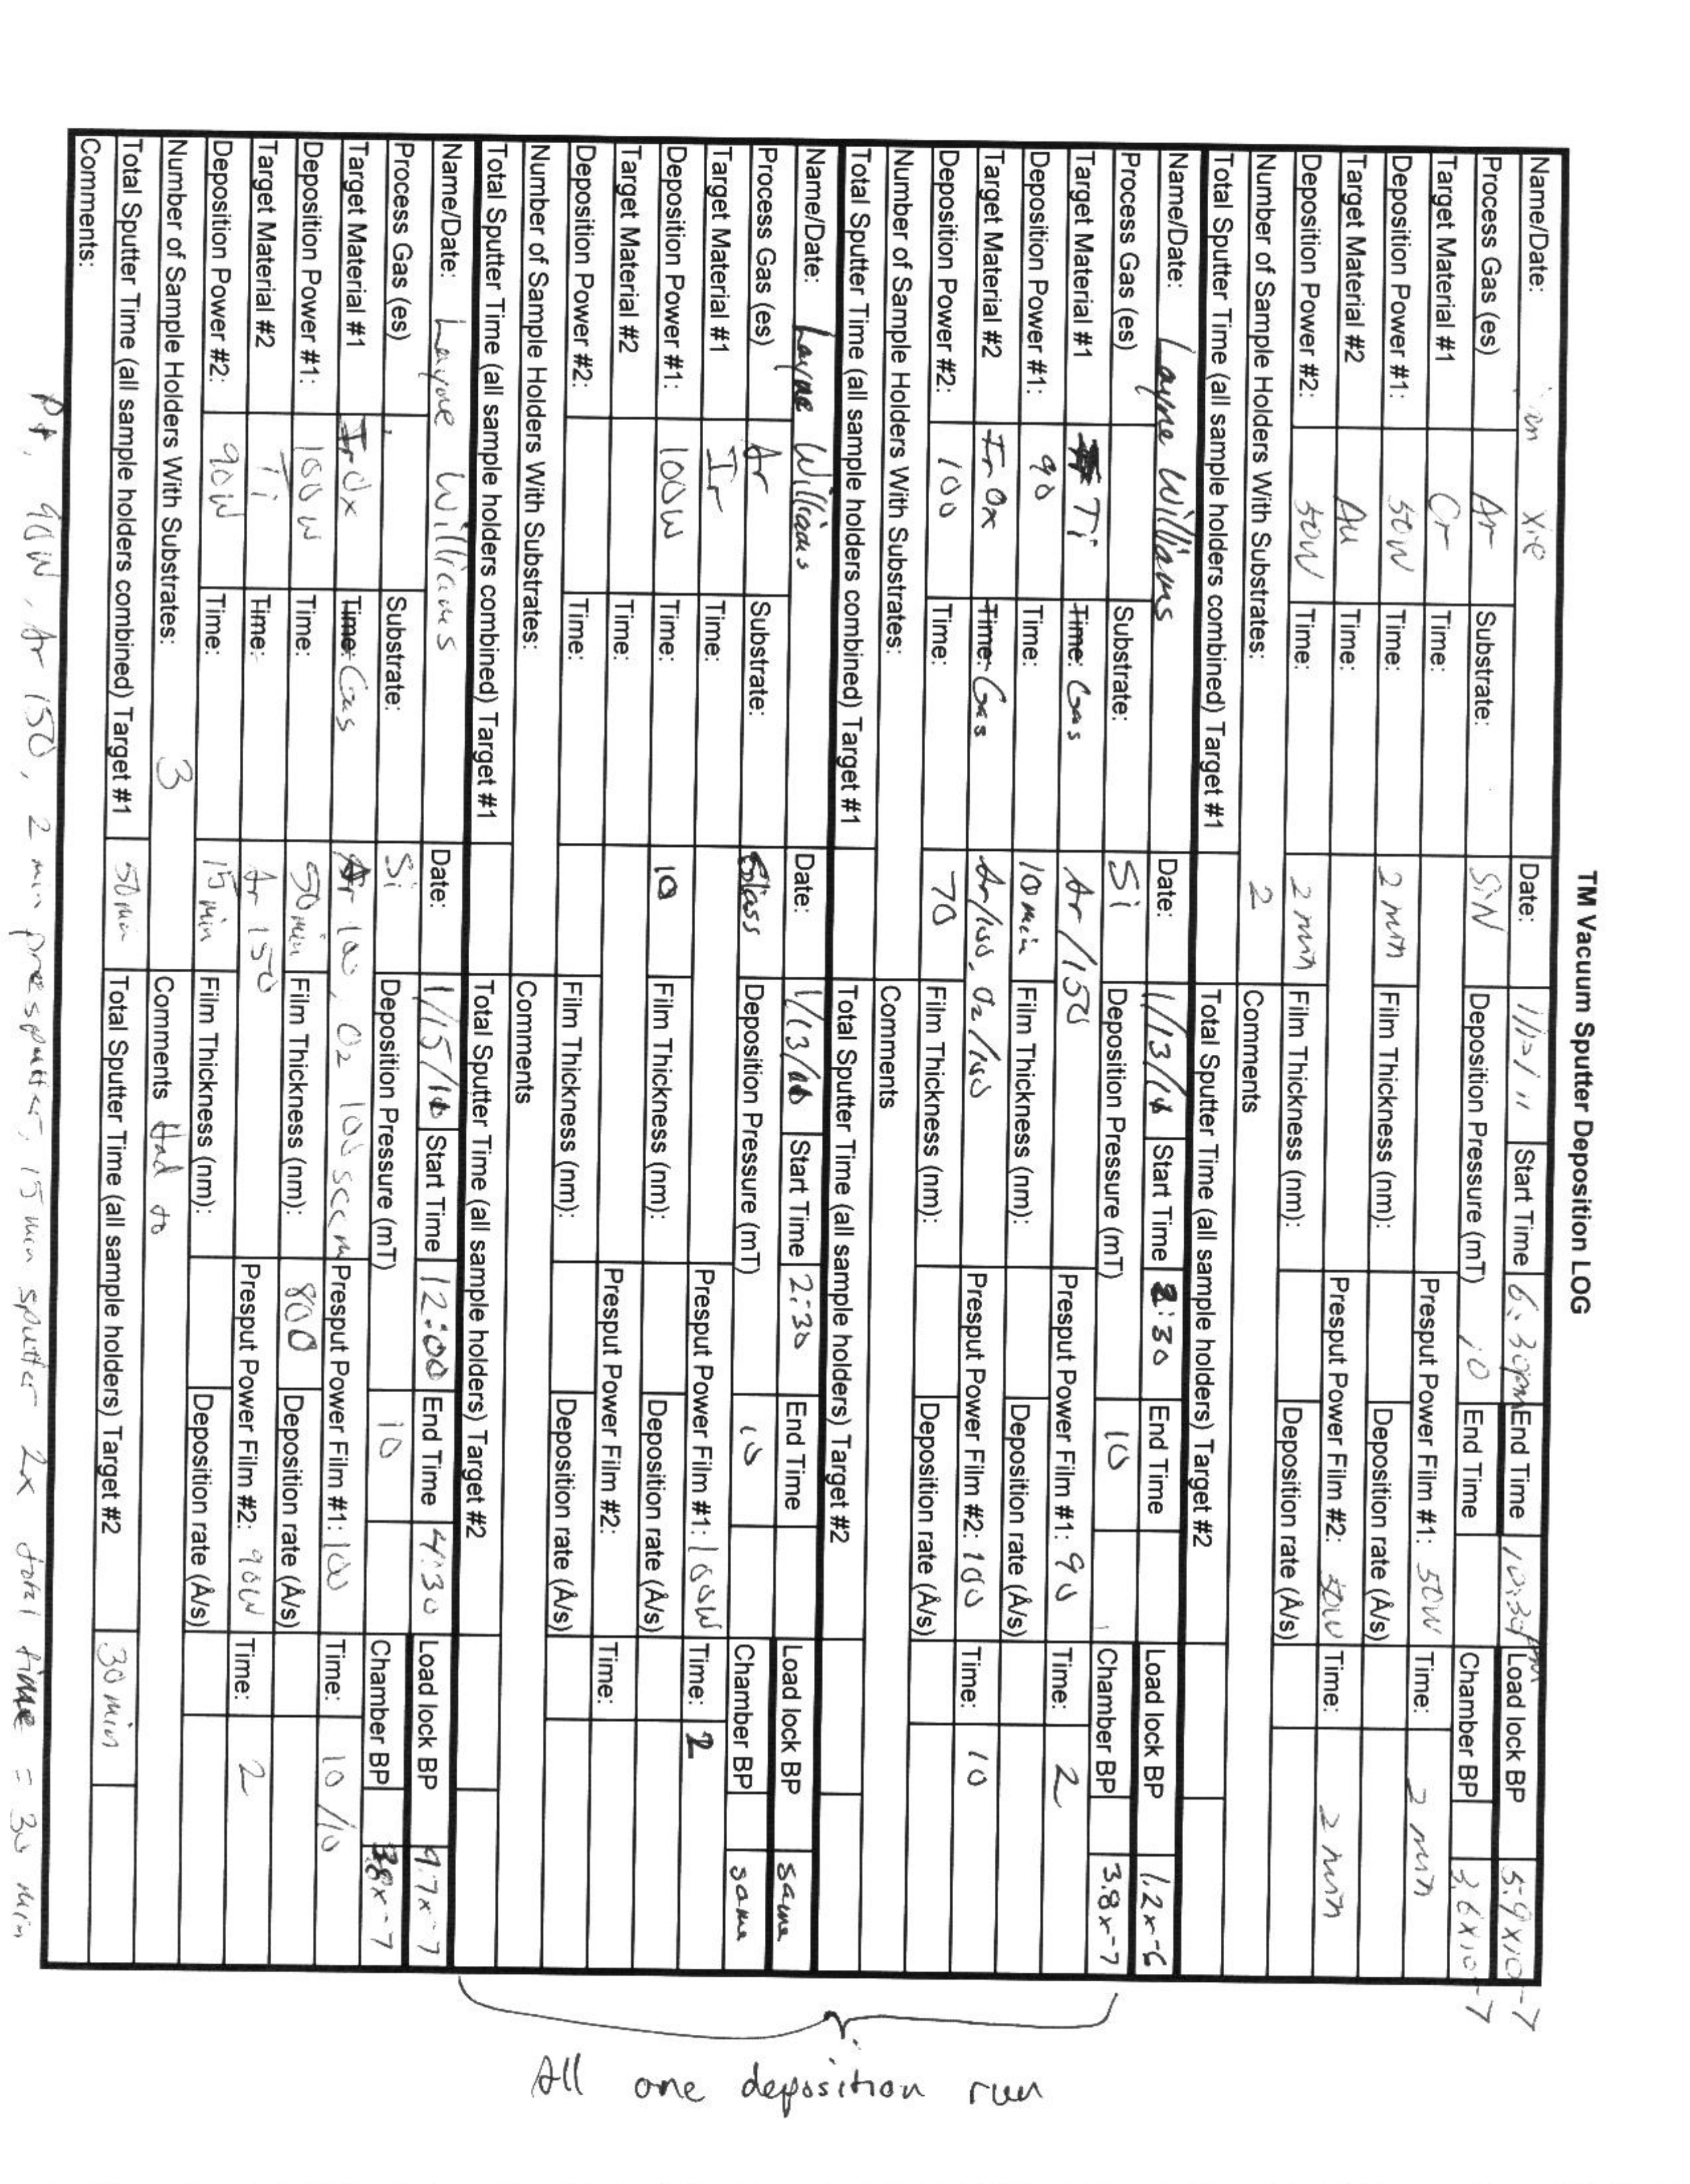 TM Vacuum Sputter Deposition LOG
Name/Date: Xie Date: Start Time 6:30pm End Time 10:30pm Load lock BP 5.9x10-7
Process Gas (es) Ar Substrate: SiN Deposition Pressure (mT) 10 End Time Chamber BP 3.6x10-7
Target Material #1 Cr Time: Presput Power Film #1: 50W Time: 2 min
Deposition Power #1: 50W Time: 2 min Film Thickness (nm): Deposition rate (Å/s)
Target Material #2 Au Time: Presput Power Film #2: 50W Time: 2 min
Deposition Power #2: 50W Time: 2 min Film Thickness (nm): Deposition rate (Å/s)
Number of Sample Holders With Substrates: 2 Comments
Total Sputter Time (all sample holders combined) Target #1 Total Sputter Time (all sample holders) Target #2
Name/Date: Layne Williams Date: 1/13/ Start Time :30 End Time Load lock BP 1.2x-6
Process Gas (es) Substrate: Si Deposition Pressure (mT) 10 Chamber BP 3.8x-7
Target Material #1 Ti Time: Gas Ar/150 Presput Power Film #1: 90 Time: 2
Deposition Power #1: 90 Time: 10 min Film Thickness (nm): Deposition rate (Å/s)
Target Material #2 IrOx Time: Gas Ar/100, O2/100 Presput Power Film #2: 100 Time: 10
Deposition Power #2: 100 Time: 70 Film Thickness (nm): Deposition rate (Å/s)
Number of Sample Holders With Substrates: Comments
Total Sputter Time (all sample holders combined) Target #1 Total Sputter Time (all sample holders) Target #2
Name/Date: Layne Williams Date: 1/13/ Start Time 2:30 End Time Load lock BP same
Process Gas (es) Ar Substrate: Glass Deposition Pressure (mT) 10 Chamber BP same
Target Material #1 Ir Time: Presput Power Film #1: 100W Time: 2
Deposition Power #1: 100W Time: 10 Film Thickness (nm): Deposition rate (Å/s)
Target Material #2 Time: Presput Power Film #2: Time:
Deposition Power #2: Time: Film Thickness (nm): Deposition rate (Å/s)
Number of Sample Holders With Substrates: Comments
Total Sputter Time (all sample holders combined) Target #1 Total Sputter Time (all sample holders) Target #2
All one deposition run
Name/Date: Layne Williams Date: 1/15/ Start Time 12:00 End Time 4:30 Load lock BP 9.7x-7
Process Gas (es) Substrate: Si Deposition Pressure (mT) 10 Chamber BP 3.8x-7
Target Material #1 IrOx Time: Gas Ar 100, O2 100 sccm Presput Power Film #1: 100 Time: 10/10
Deposition Power #1: 100W Time: 50 min Film Thickness (nm): 800 Deposition rate (Å/s)
Target Material #2 Ti Time: Ar 150 Presput Power Film #2: 90W Time: 2
Deposition Power #2: 90W Time: 15 min Film Thickness (nm): Deposition rate (Å/s)
Number of Sample Holders With Substrates: 3 Comments Had to
Total Sputter Time (all sample holders combined) Target #1 50 min Total Sputter Time (all sample holders) Target #2 30 min
Comments:
Pt, 90W, Ar 150, 2 min presputter, 15 min sputter 2x total time = 30 min